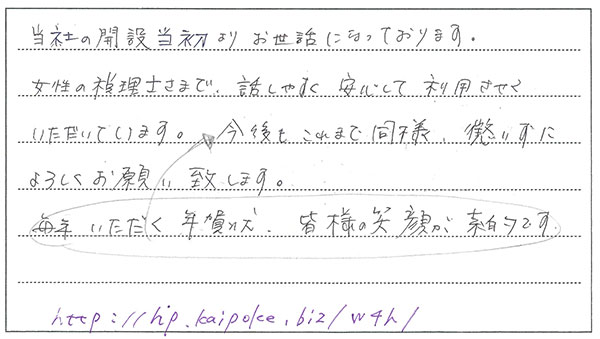 当社の開設当初より お世話になっております。
女性の税理士さまで、話しやすく 安心して 利用させて
いただいています。今後も これまで同様、懲りずに
よろしくお願い致します。
毎年 いただく 年賀状、皆様の笑顔が 素的です
http://hp.kaipoke.biz/w4h/